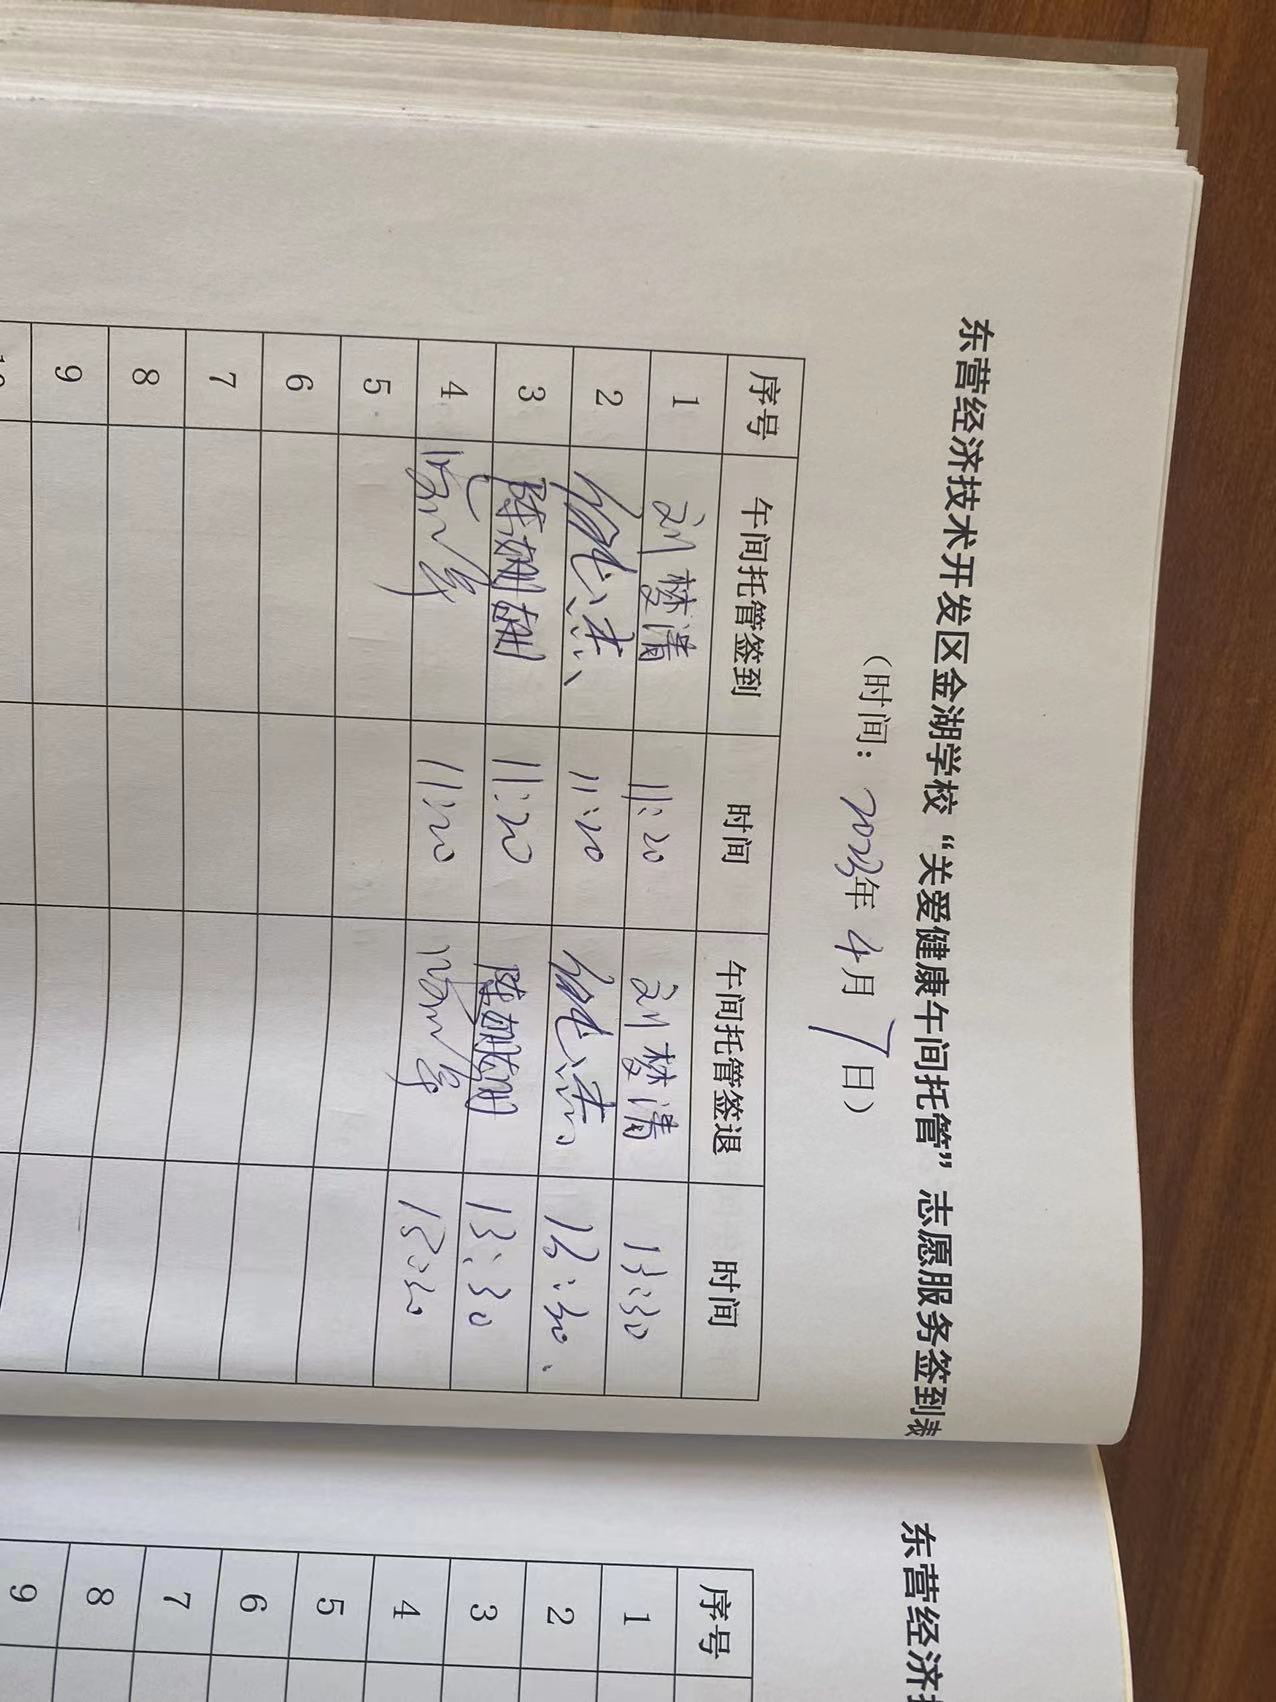 东营经济技术开发区金湖学校“关爱健康午间托管”志愿服务签到表
（时间：2023年4月7日）
序号 午间托管签到 时间 午间托管签退 时间
1 刘梦清 11:20 刘梦清 13:30
2 11:20 13:30.
3 陈姗姗 11:20 陈姗姗 13:30
4 11:20 13:30
5
6
7
8
9
10
东营经济技
序号
1
2
3
4
5
6
7
8
9